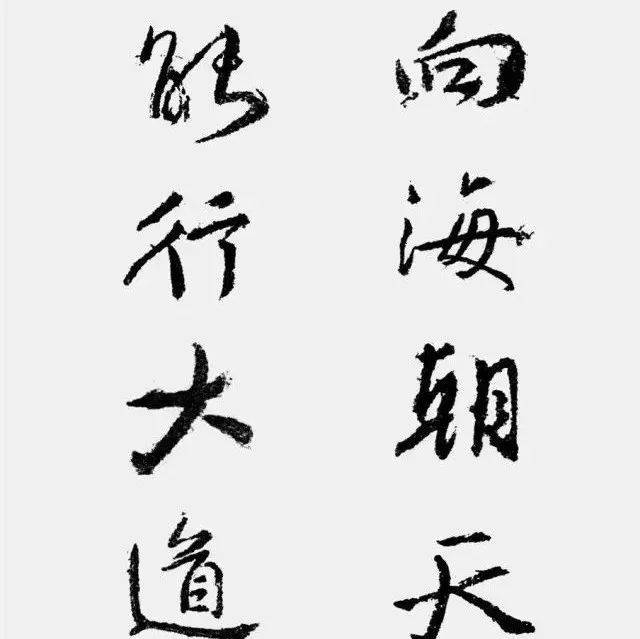 向海朝天
能行大道